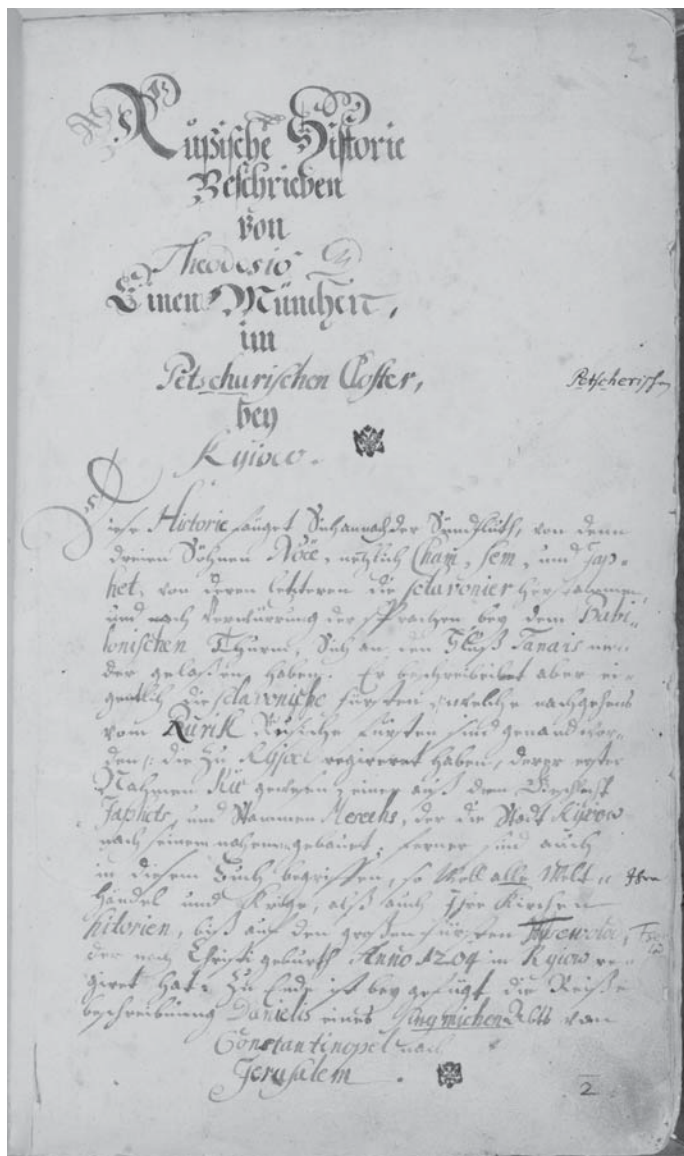 2
Rußische Historie
Beschrieben
von
Theodosio
Einen München,
im
Petschurischen Closter,
bey
Kyiow.
Petscherisch
Diese Historie fanget Sich an nach der Sündfluth, von denen
dreien Söhnen Noëe, nehmlich Cham, Sem, und Jap-
het, von deren letzteren die sclavonier herstammen,
und nach Verwürrung der Sprachen bey dem Babi-
lonischen Thurm, Sich an den Fluß Tanais nie-
der gelaßen haben. Er beschreibet aber ei-
gentlich die sclavonische fürsten welche nachgehens
vom Rurik Rusische Fürsten sind genand wor-
den: die zu Kyiow regieret haben, derer erster
Nahmen Kie gewesen einer auß dem Geschlecht
Japhets, und Stammen Mesechs, der die Stadt Kyiow
nach seinem nahmen gebauet; ferner sind auch
in diesem Buch begriffen, so Woll alle Welt
Händel und Krige, alß auch Ihre Kirchen
historien, biß auf den großen fürsten
der nach Christi geburth Anno 1204 in Kyiow re-
giret hat. Zu Ende ist bey gefügt die Reise
beschreibung Danielis eines Abts von
Constantinopel nach
Jerusalem.
2